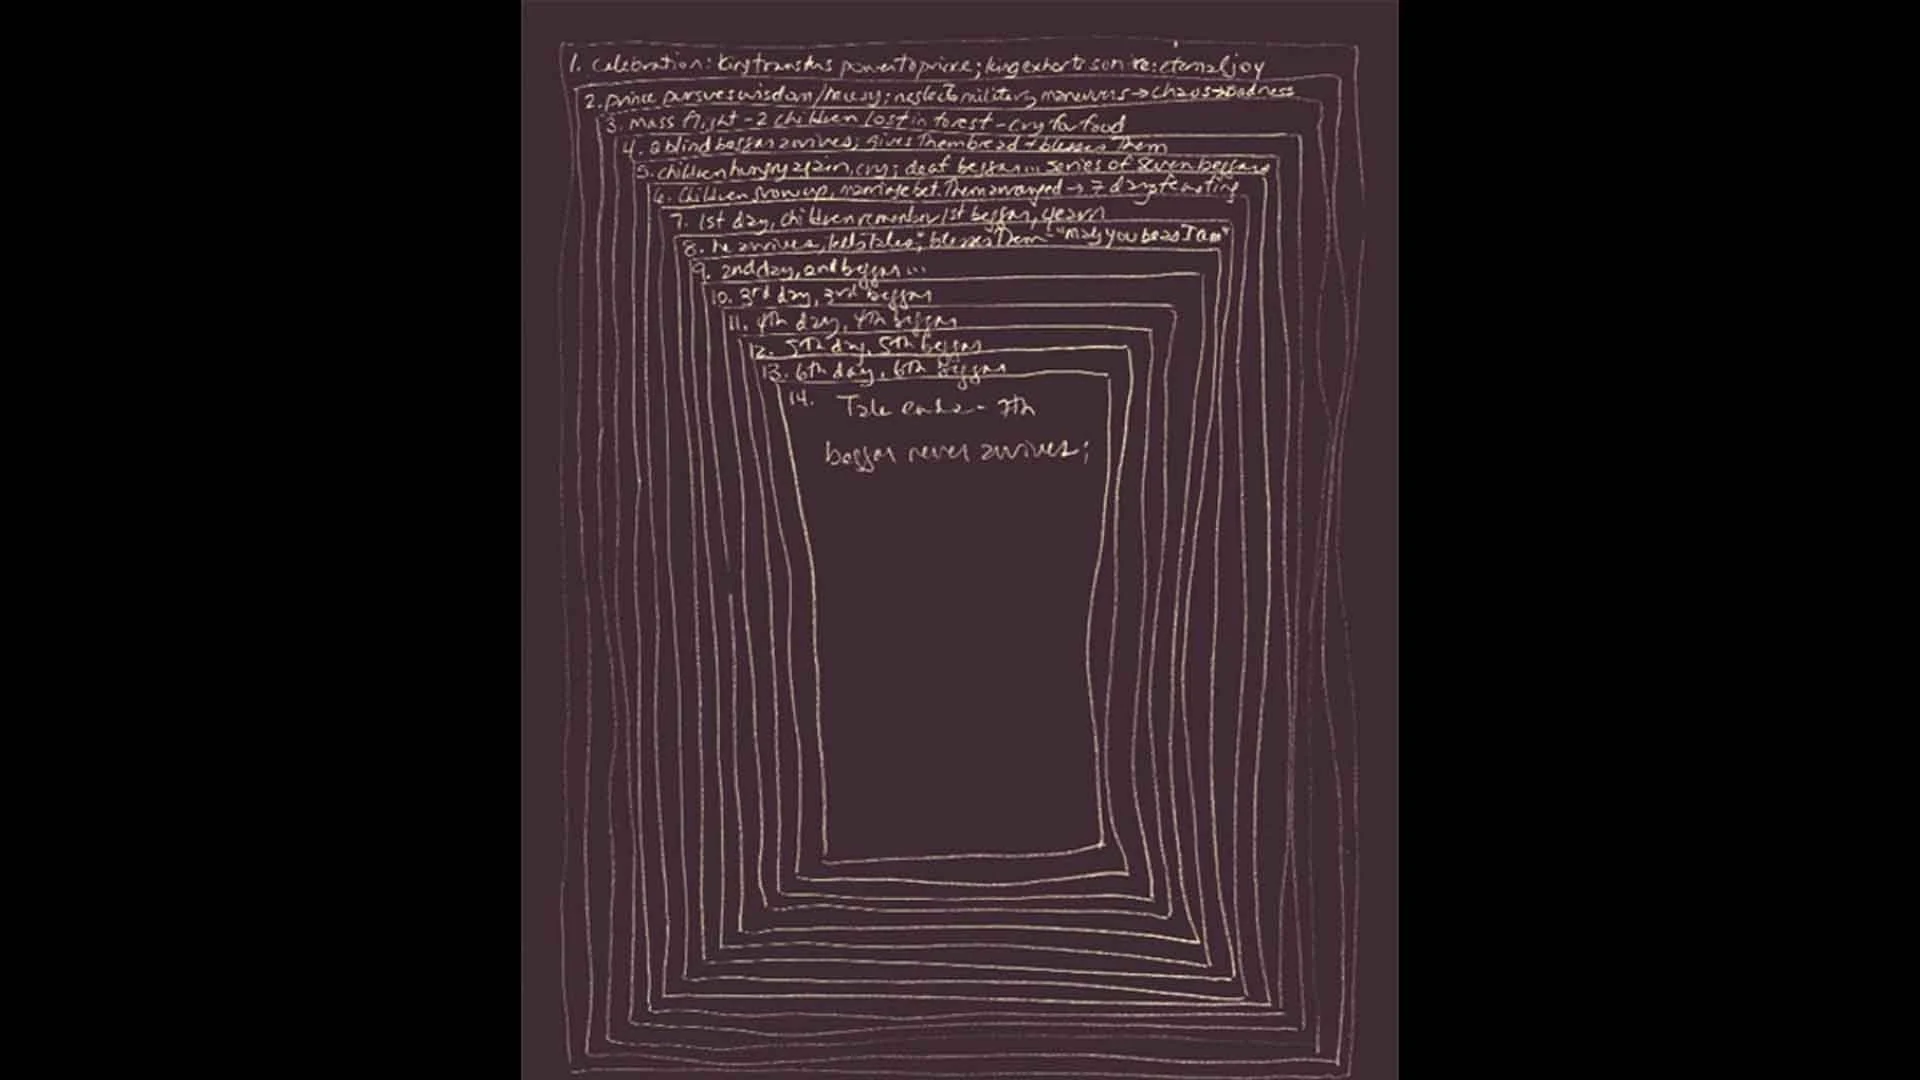 1. Celebration: King transfers power to prince; king exhorts son re: eternal joy
2. prince pursues wisdom/heresy; neglects military maneuvers → chaos → sadness
3. Mass flight - 2 children lost in forest - cry for food
4. a blind beggar arrives; gives them bread + blesses them
5. children hungry again, cry; deaf beggar... series of seven beggars
6. Children grow up, marriage bet. them arranged → 7 days feasting
7. 1st day, children remember 1st beggar, yearn
8. he arrives, tells tales; blesses them - "may you be as I am"
9. 2nd day, 2nd beggar...
10. 3rd day, 3rd beggar
11. 4th day, 4th beggar
12. 5th day, 5th beggar
13. 6th day, 6th beggar
14. Tale ends - 7th
beggar never arrives;